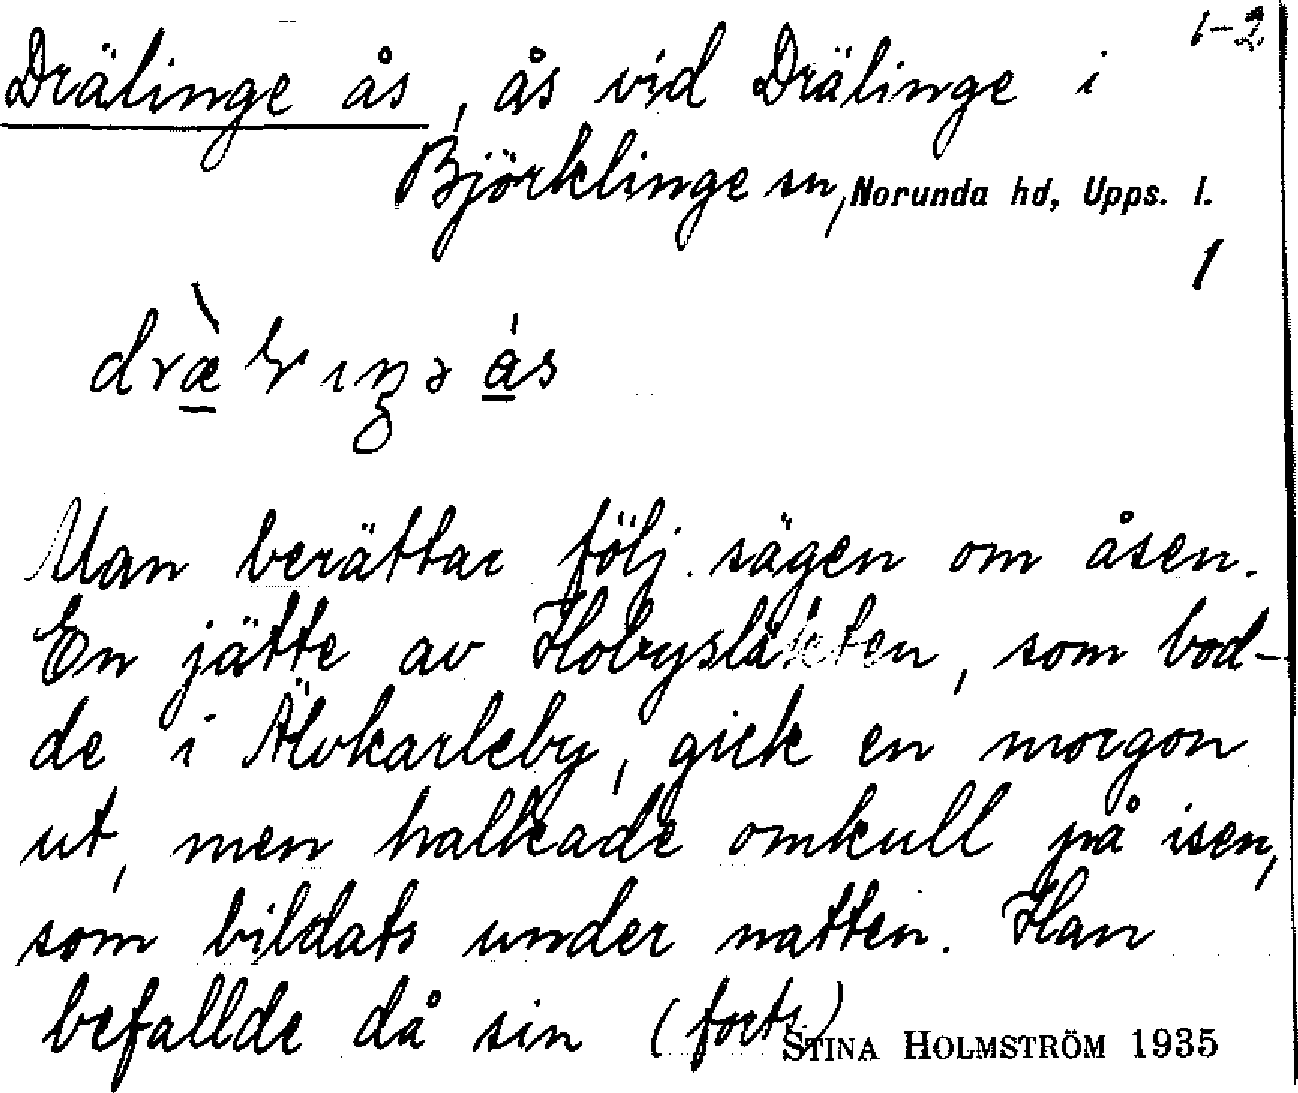 1-2
Drälinge ås, ås vid Drälinge i
Björklinge sn, Norunda hd, Upps. l.
1
Man berättar följ. sägen om åsen.
En jätte av Hobysläkten, som bod-
de i Älvkarleby, gick en morgon
ut, men halkade omkull på isen,
som bildats under natten. Han
befallde då sin (forts.)
STINA HOLMSTRÖM 1935